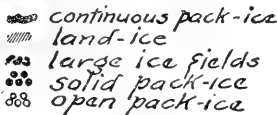 continuous pack-ice
land-ice
large ice fields
solid pack-ice
open pack-ice